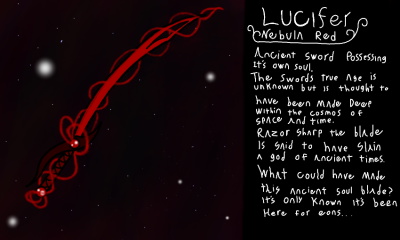 LUCIFER
Nebula Red
Ancient sword Possessing
It's own soul.
The swords true age is
unknown but is thought to
have been made Deep
within the cosmos of
space and time.
Razor sharp the blade
Is said to have slain
a god of ancient times.
What could have made
this ancient soul blade?
It's only known it's been
Here for eons...